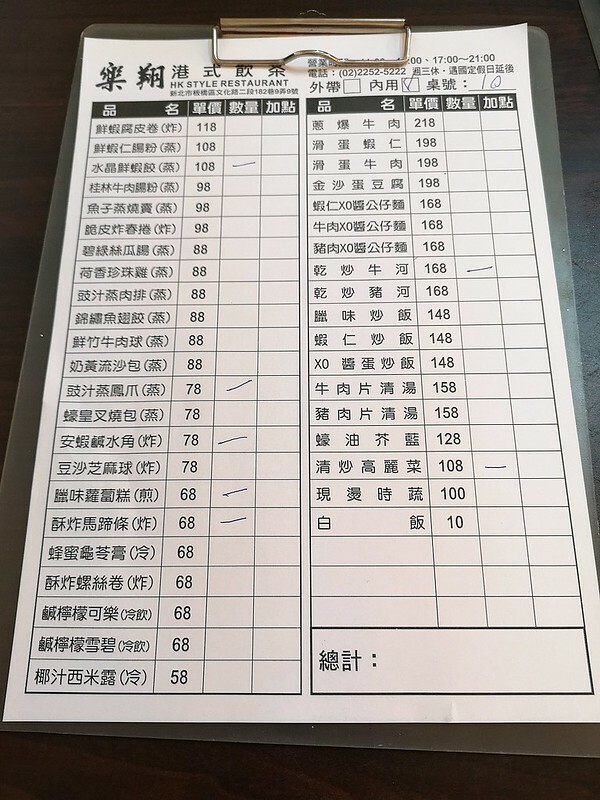 樂翔 港式飲茶
HK STYLE RESTAURANT
新北市板橋區文化路二段182巷9弄9號
、17:00～21:00
電話：(02)2252-5222 週三休，遇國定假日延後
外帶 內用 ✓ 桌號：10
品名 單價 數量 加點
鮮蝦腐皮卷(炸) 118
鮮蝦仁腸粉(蒸) 108
水晶鮮蝦餃(蒸) 108 一
桂林牛肉腸粉(蒸) 98
魚子蒸燒賣(蒸) 98
脆皮炸春捲(炸) 98
碧綠絲瓜腸(蒸) 88
荷香珍珠雞(蒸) 88
豉汁蒸肉排(蒸) 88
錦繡魚翅餃(蒸) 88
鮮竹牛肉球(蒸) 88
奶黃流沙包(蒸) 88
豉汁蒸鳳爪(蒸) 78 一
蠔皇叉燒包(蒸) 78
安蝦鹹水角(炸) 78 一
豆沙芝麻球(炸) 78
臘味蘿蔔糕(煎) 68 一
酥炸馬蹄條(炸) 68 一
蜂蜜龜苓膏(冷) 68
酥炸螺絲卷(炸) 68
鹹檸檬可樂(冷飲) 68
鹹檸檬雪碧(冷飲) 68
椰汁西米露(冷) 58
品名 單價 數量 加點
蔥爆牛肉 218
滑蛋蝦仁 198
滑蛋牛肉 198
金沙蛋豆腐 198
蝦仁XO醬公仔麵 168
牛肉XO醬公仔麵 168
豬肉XO醬公仔麵 168
乾炒牛河 168 一
乾炒豬河 168
臘味炒飯 148
蝦仁炒飯 148
XO醬蛋炒飯 148
牛肉片清湯 158
豬肉片清湯 158
蠔油芥藍 128
清炒高麗菜 108 一
現燙時蔬 100
白飯 10
總計：